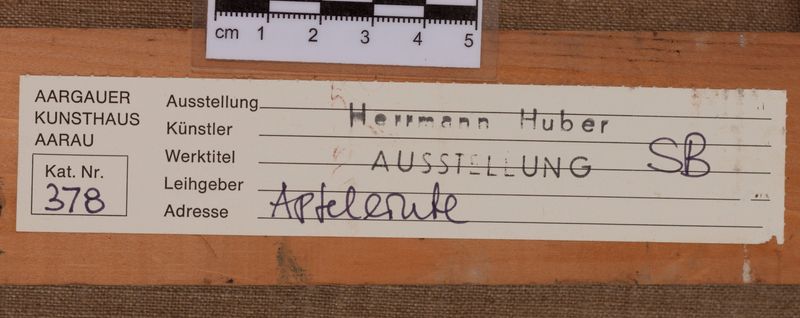 cm 1 2 3 4 5
AARGAUER
KUNSTHAUS
AARAU
Kat. Nr.
378
Ausstellung
Künstler
Werktitel
Leihgeber
Adresse
Herrmann Huber
AUSSTELLUNG SB
Apfelernte